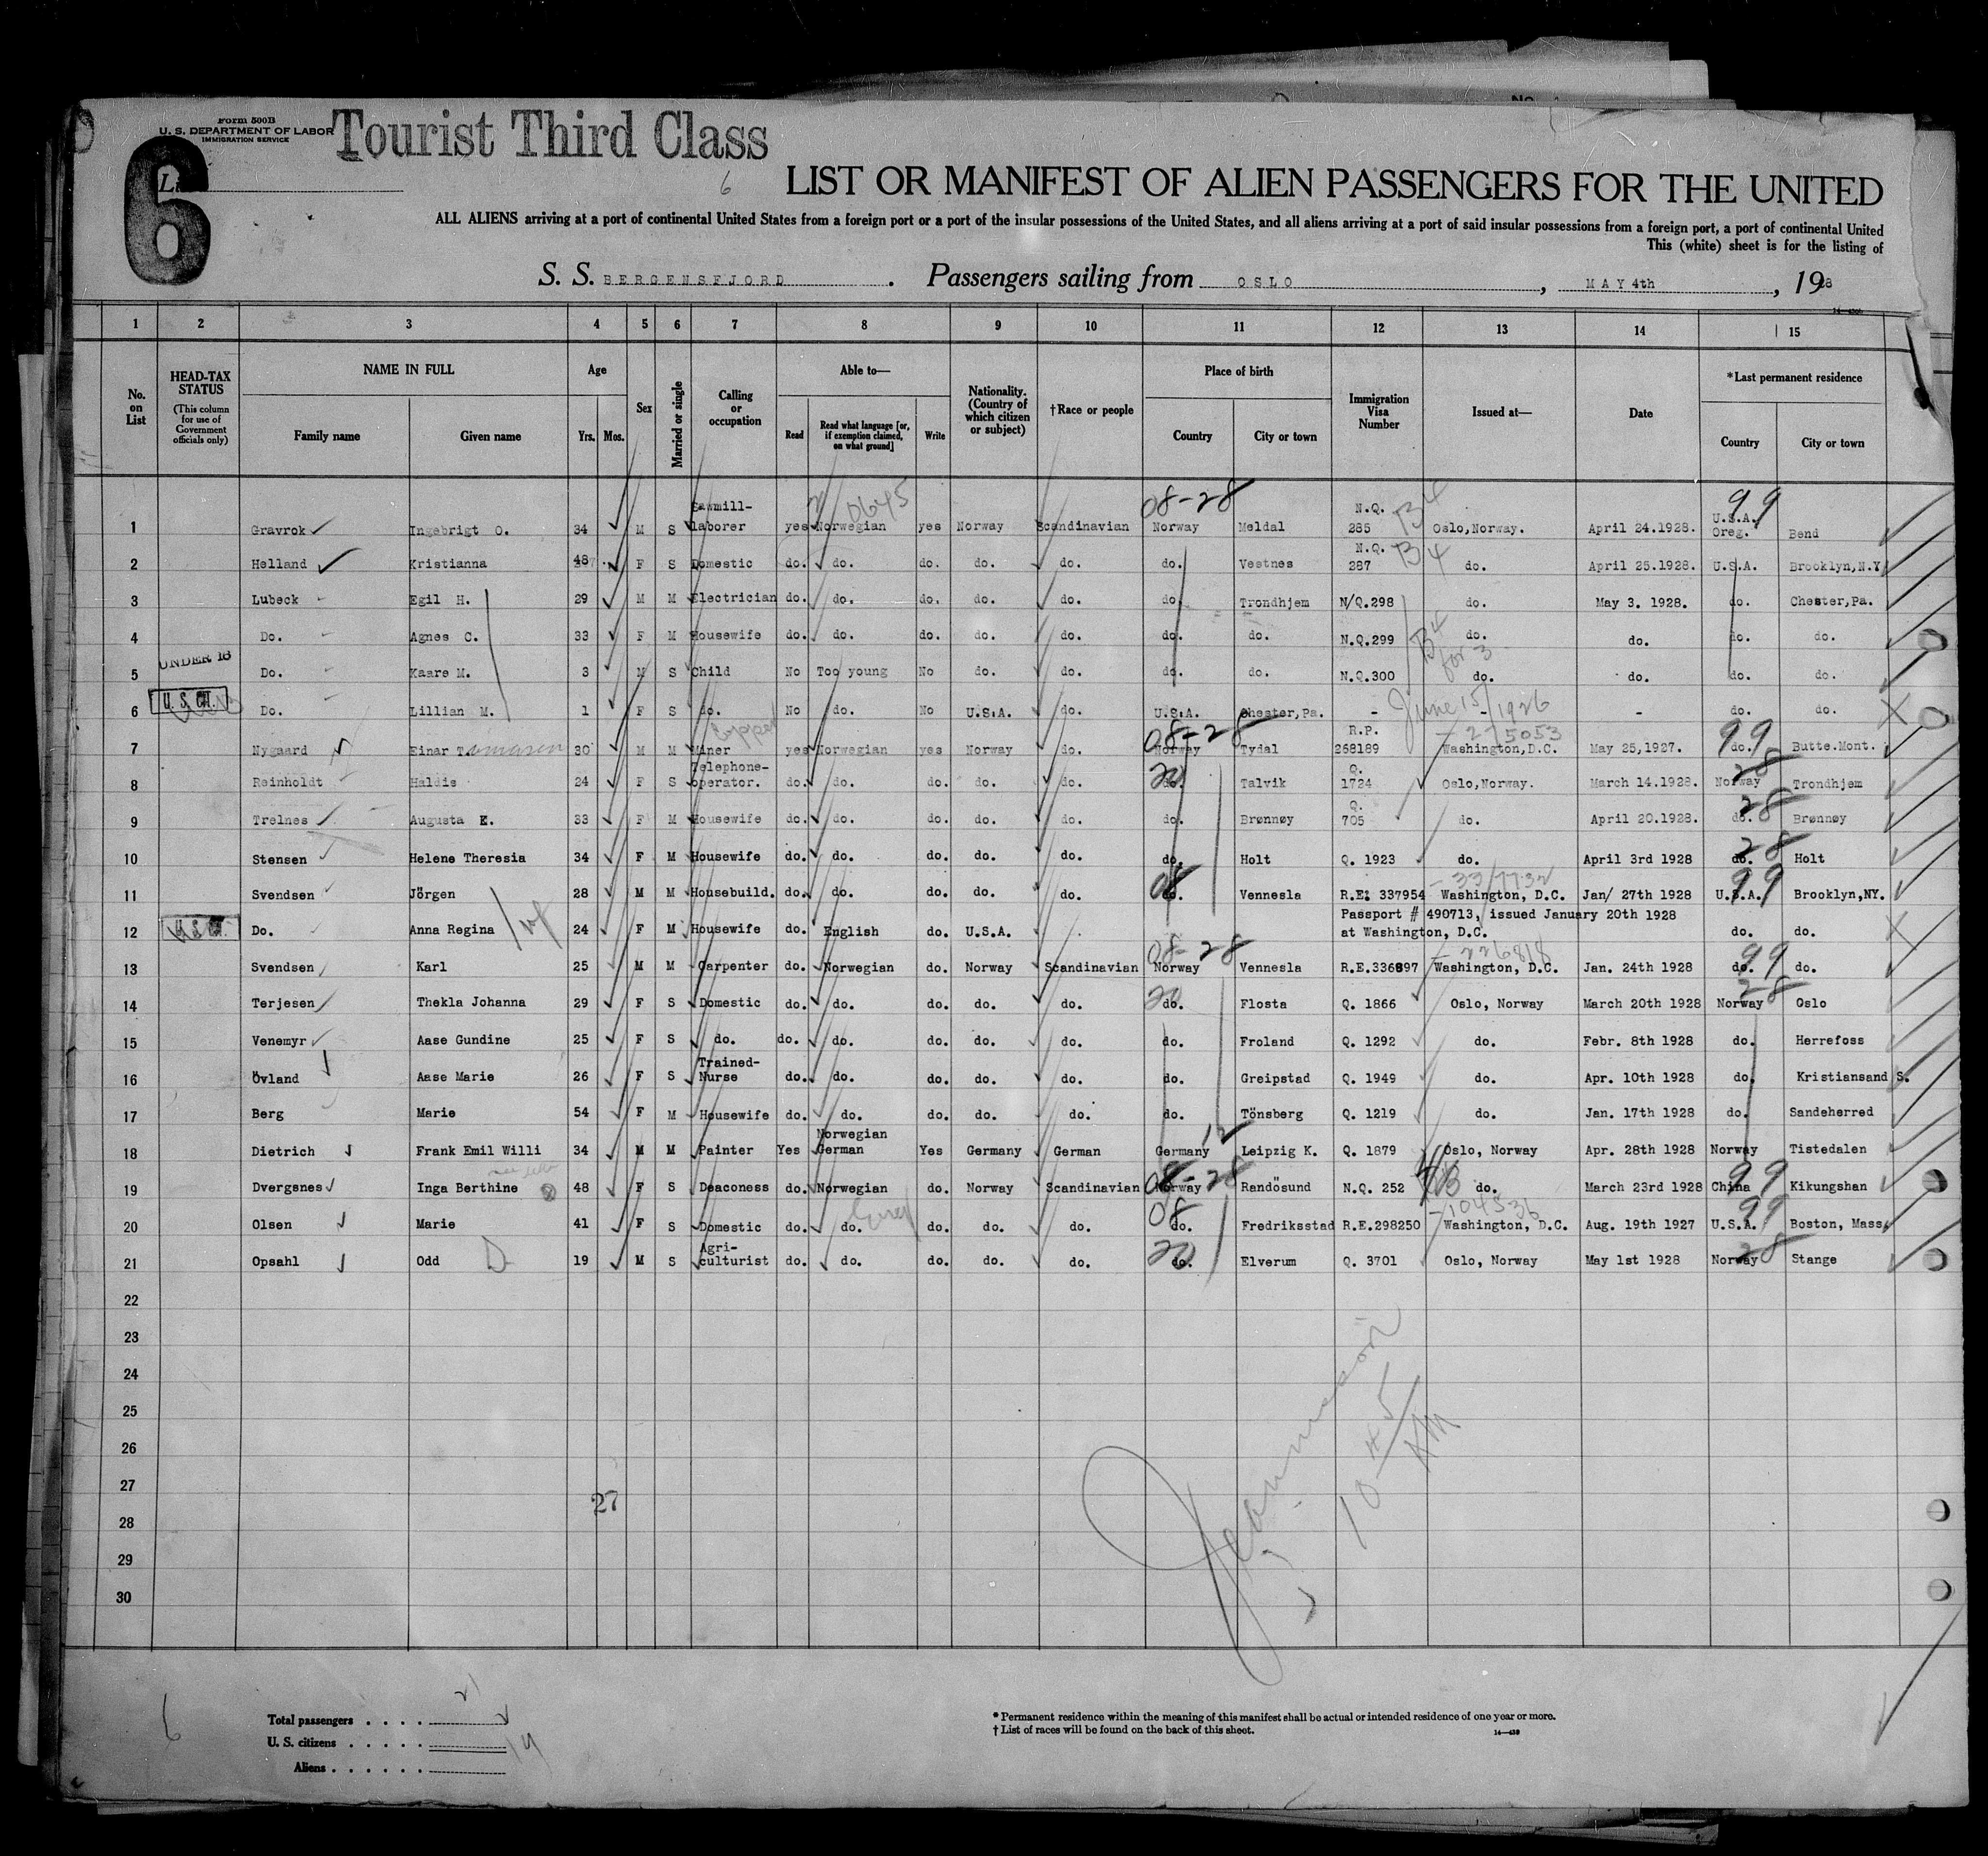 Form 500B
U. S. DEPARTMENT OF LABOR
IMMIGRATION SERVICE
Tourist Third Class
6
6
LIST OR MANIFEST OF ALIEN PASSENGERS FOR THE UNITED
ALL ALIENS arriving at a port of continental United States from a foreign port or a port of the insular possessions of the United States, and all aliens arriving at a port of said insular possessions from a foreign port, a port of continental United
This (white) sheet is for the listing of
S. S. BERGENSFJORD. Passengers sailing from OSLO, MAY 4th, 1928
1 2 3 4 5 6 7 8 9 10 11 12 13 14 15
No. on List
HEAD-TAX STATUS (This column for use of Government officials only)
NAME IN FULL Family name Given name
Age Yrs. Mos.
Sex
Married or single
Calling or occupation
Able to— Read Read what language [or, if exemption claimed, on what ground] Write
Nationality. (Country of which citizen or subject)
†Race or people
Place of birth Country City or town
Immigration Visa Number
Issued at—
Date
*Last permanent residence Country City or town
1 Gravrok Ingebrigt O. 34 M S Sawmill-laborer yes Norwegian yes Norway Scandinavian 08-28 Norway Meldal N.Q. 285 B4 Oslo,Norway. April 24.1928. 99 U.S.A. Oreg. Bend
2 Helland Kristianna 48 F S Domestic do. do. do. do. do. do. Vestnes N.Q. 287 B4 do. April 25.1928. U.S.A. Brooklyn,N.Y.
3 Lubeck Egil H. 29 M M Electrician do. do. do. do. do. do. Trondhjem N/Q.298 do. May 3. 1928. do. Chester,Pa.
4 Do. Agnes C. 33 F M Housewife do. do. do. do. do. do. do. N.Q.299 B4 for 3 do. do. do. do.
UNDER 16
5 Do. Kaare M. 3 M S Child No Too young No do. do. do. do. N.Q.300 do. do. do. do.
U. S. CIT.
6 Do. Lillian M. 1 F S do. No do. No U.S.A. do. U.S.A. Chester,Pa. - June 15/1926 - - do. do.
7 Nygaard Einar T. 30 M M Copper Miner yes Norwegian yes Norway do. 08-28 Norway Tydal R.P. 268189 -275053 Washington,D.C. May 25,1927. 99 do. Butte.Mont.
8 Reinholdt Haldis 24 F S Telephone-operator. do. do. do. do. do. 20 do. Talvik Q. 1724 Oslo,Norway. March 14.1928. 28 Norway Trondhjem
9 Trelnes Augusta E. 33 F M Housewife do. do. do. do. do. do. Brønnøy Q. 705 do. April 20.1928. 28 do. Brønnøy
10 Stensen Helene Theresia 34 F M Housewife do. do. do. do. do. do. Holt Q. 1923 do. April 3rd 1928 28 do. Holt
11 Svendsen Jörgen 28 M M Housebuild. do. do. do. do. do. 08 do. Vennesla R.E. 337954 Washington, D.C. Jan/ 27th 1928 99 U.S.A. Brooklyn,NY.
12 Do. Anna Regina 24 F M Housewife do. English do. U.S.A. Passport # 490713, issued January 20th 1928 at Washington, D.C. do. do.
13 Svendsen Karl 25 M M Carpenter do. Norwegian do. Norway Scandinavian 08-28 Norway Vennesla R.E.336897 -226818 Washington, D.C. Jan. 24th 1928 99 do. do.
14 Terjesen Thekla Johanna 29 F S Domestic do. do. do. do. do. 20 do. Flosta Q. 1866 Oslo, Norway March 20th 1928 28 Norway Oslo
15 Venemyr Aase Gundine 25 F S do. do. do. do. do. do. do. Froland Q. 1292 do. Febr. 8th 1928 do. Herrefoss
16 Övland Aase Marie 26 F S Trained-Nurse do. do. do. do. do. do. Greipstad Q. 1949 do. Apr. 10th 1928 do. Kristiansand S.
17 Berg Marie 54 F M Housewife do. do. do. do. do. do. Tönsberg Q. 1219 do. Jan. 17th 1928 do. Sandeherred
18 Dietrich Frank Emil Willi 34 M M Painter Yes Norwegian German Yes Germany German 12 Germany Leipzig K. Q. 1879 Oslo, Norway Apr. 28th 1928 Norway Tistedalen
19 Dvergsnes Inga Berthine 48 F S Deaconess do. Norwegian do. Norway Scandinavian 08-28 Norway Randösund N.Q. 252 do. March 23rd 1928 99 China Kikungshan
20 Olsen Marie 41 F S Domestic do. do. do. do. do. 08 do. Fredriksstad R.E.298250 -104536 Washington, D.C. Aug. 19th 1927 99 U.S.A. Boston, Mass.
21 Opsahl Odd 19 M S Agri-culturist do. do. do. do. do. 20 do. Elverum Q. 3701 Oslo, Norway May 1st 1928 28 Norway Stange
22
23
24
25
26
27
27
28
29
30
6
Total passengers . . . . 21
U. S. citizens . . . . .
Aliens . . . . . . 19
* Permanent residence within the meaning of this manifest shall be actual or intended residence of one year or more.
† List of races will be found on the back of this sheet.